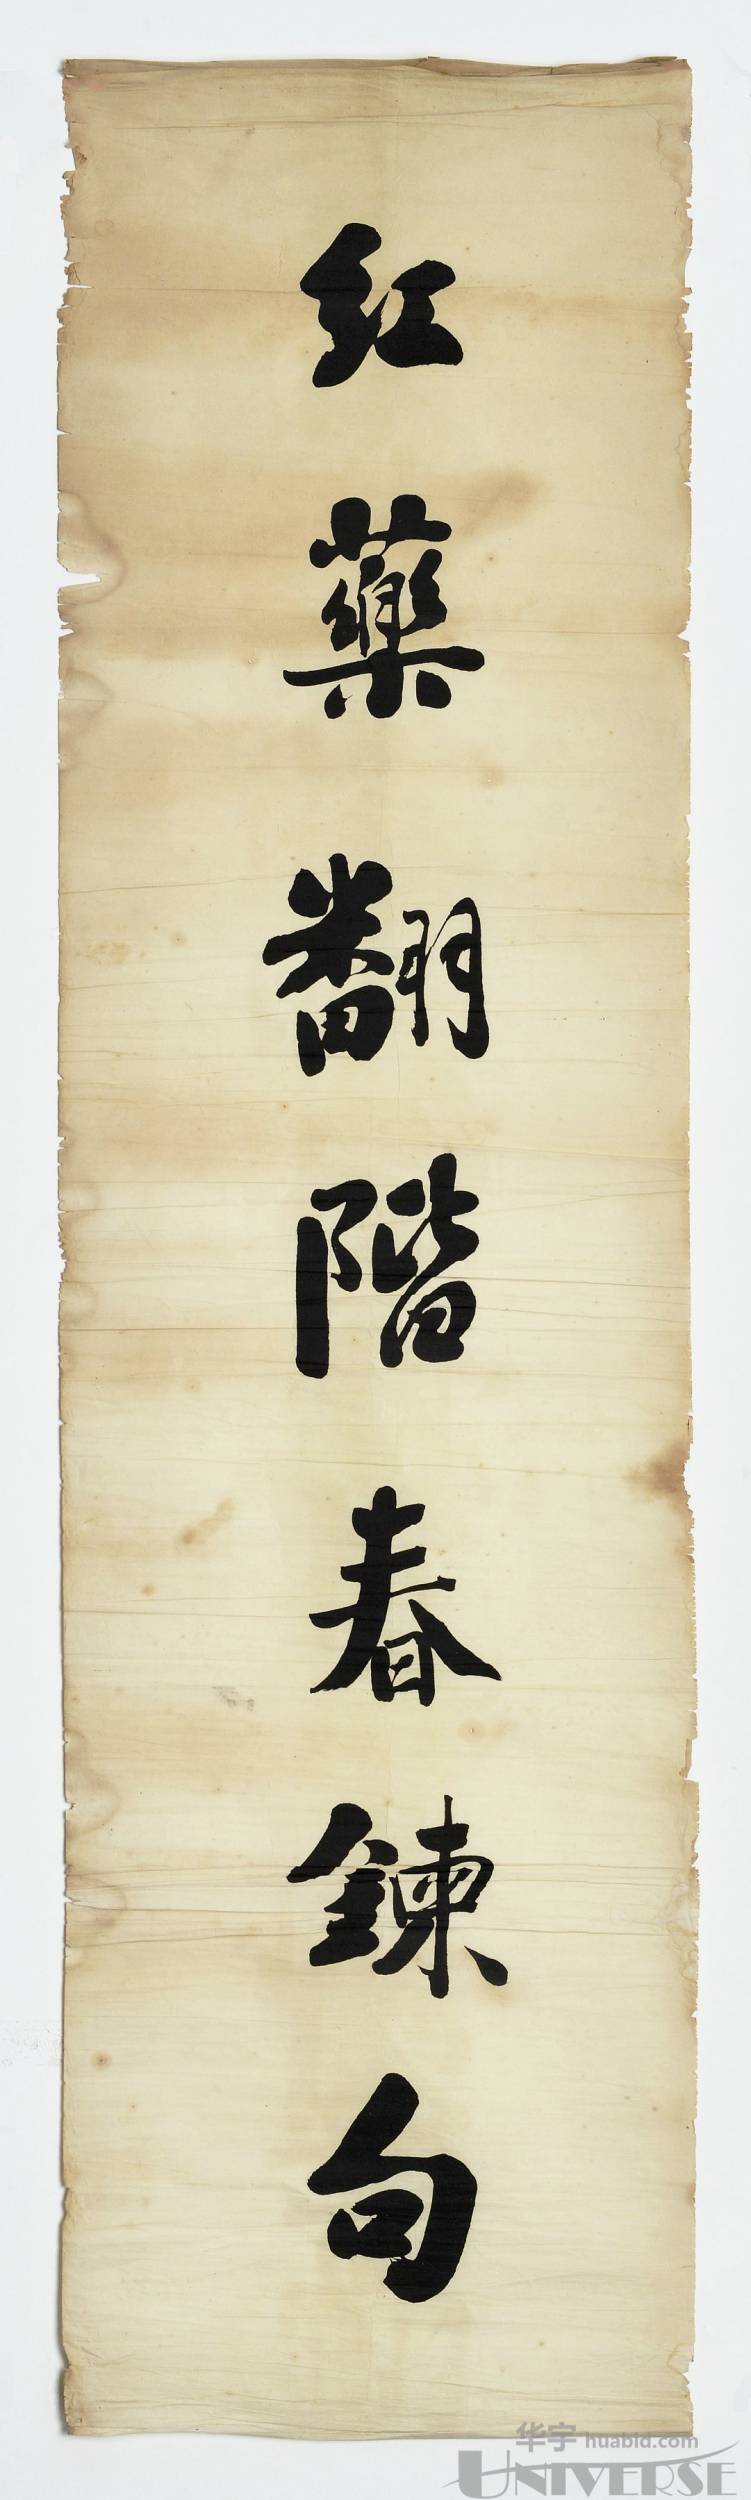 紅藥翻階春鍊句
华宇 huabid.com
UNIVERSE